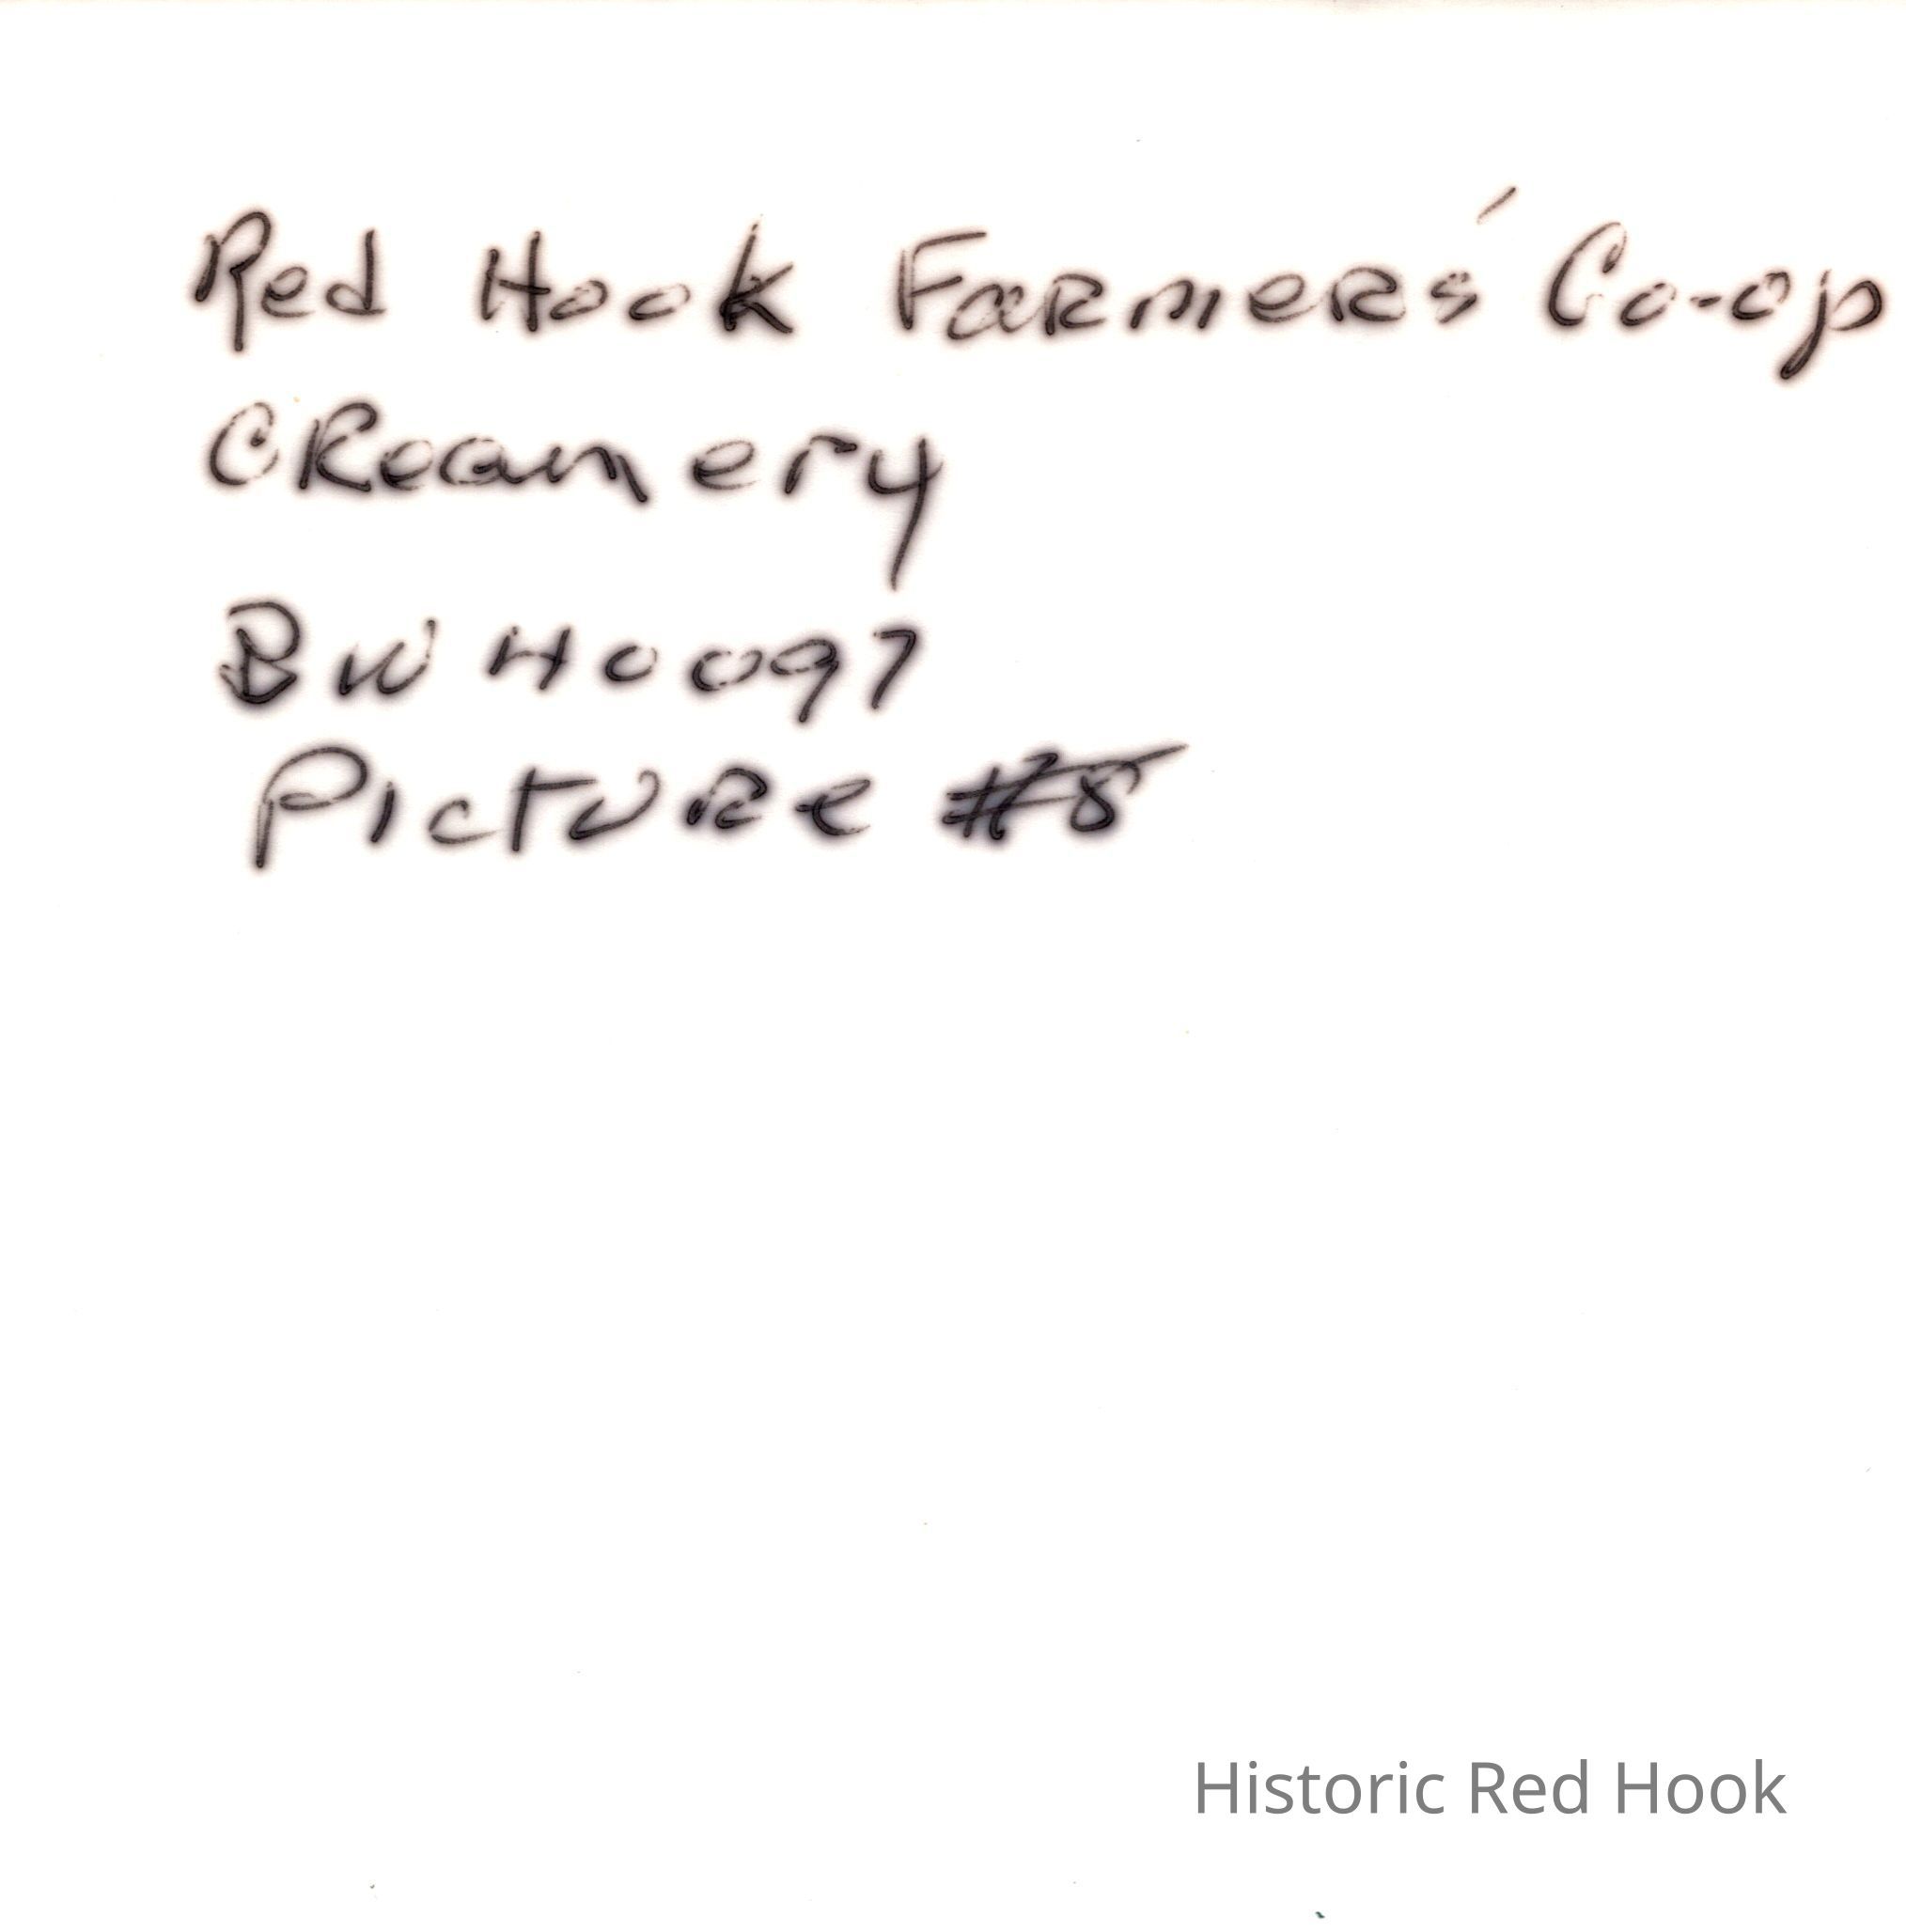 Red Hook Farmers' Co-op
Creamery
BWH0097
Picture #8
Historic Red Hook